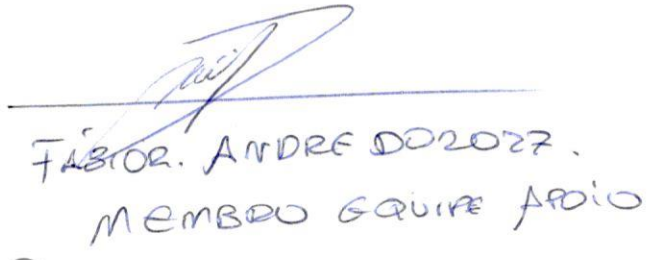 FÁBIO R. ANDRE DOROTZ.
MEMBRO EQUIPE APOIO